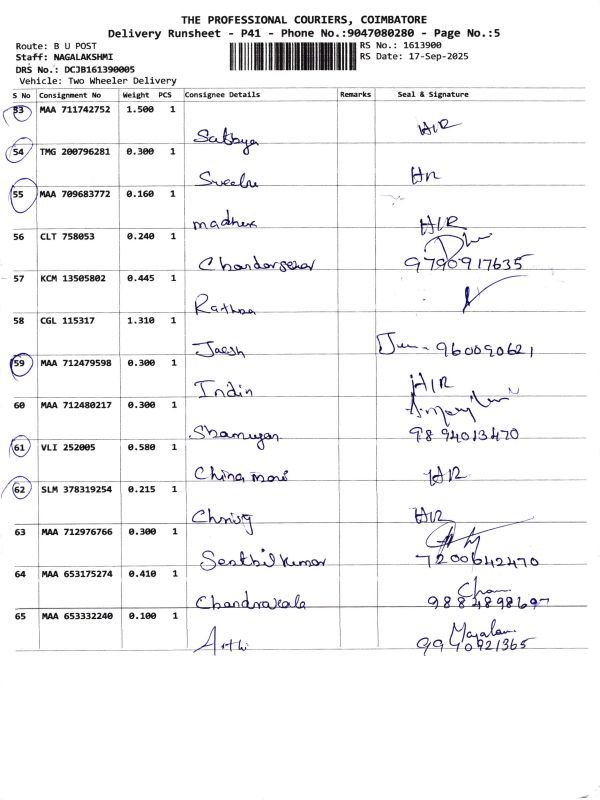 THE PROFESSIONAL COURIERS, COIMBATORE
Delivery Runsheet - P41 - Phone No.:9047080280 - Page No.:5
Route: B U POST
RS No.: 1613900
Staff: NAGALAKSHMI
RS Date: 17-Sep-2025
DRS No.: DCJB161390005
Vehicle: Two Wheeler Delivery
S No Consignment No Weight PCS Consignee Details Remarks Seal & Signature
53 MAA 711742752 1.500 1
Sathya H/R
54 TMG 200796281 0.300 1
Sreebu HR
55 MAA 709683772 0.160 1
madhu H/R
56 CLT 758053 0.240 1
Chandarsekar 9790917635
57 KCM 13505802 0.445 1
Rathna
58 CGL 115317 1.310 1
Jaesh 960090621
59 MAA 712479598 0.300 1
Indin H/R
60 MAA 712480217 0.300 1
Shamugan 9894013470
61 VLI 252005 0.580 1
China mani H/R
62 SLM 378319254 0.215 1
H/R
63 MAA 712976766 0.300 1
Senthil Kumar 7200642470
64 MAA 653175274 0.410 1
Chandrakala 9884898697
65 MAA 653332240 0.100 1
Arthi 9940921365